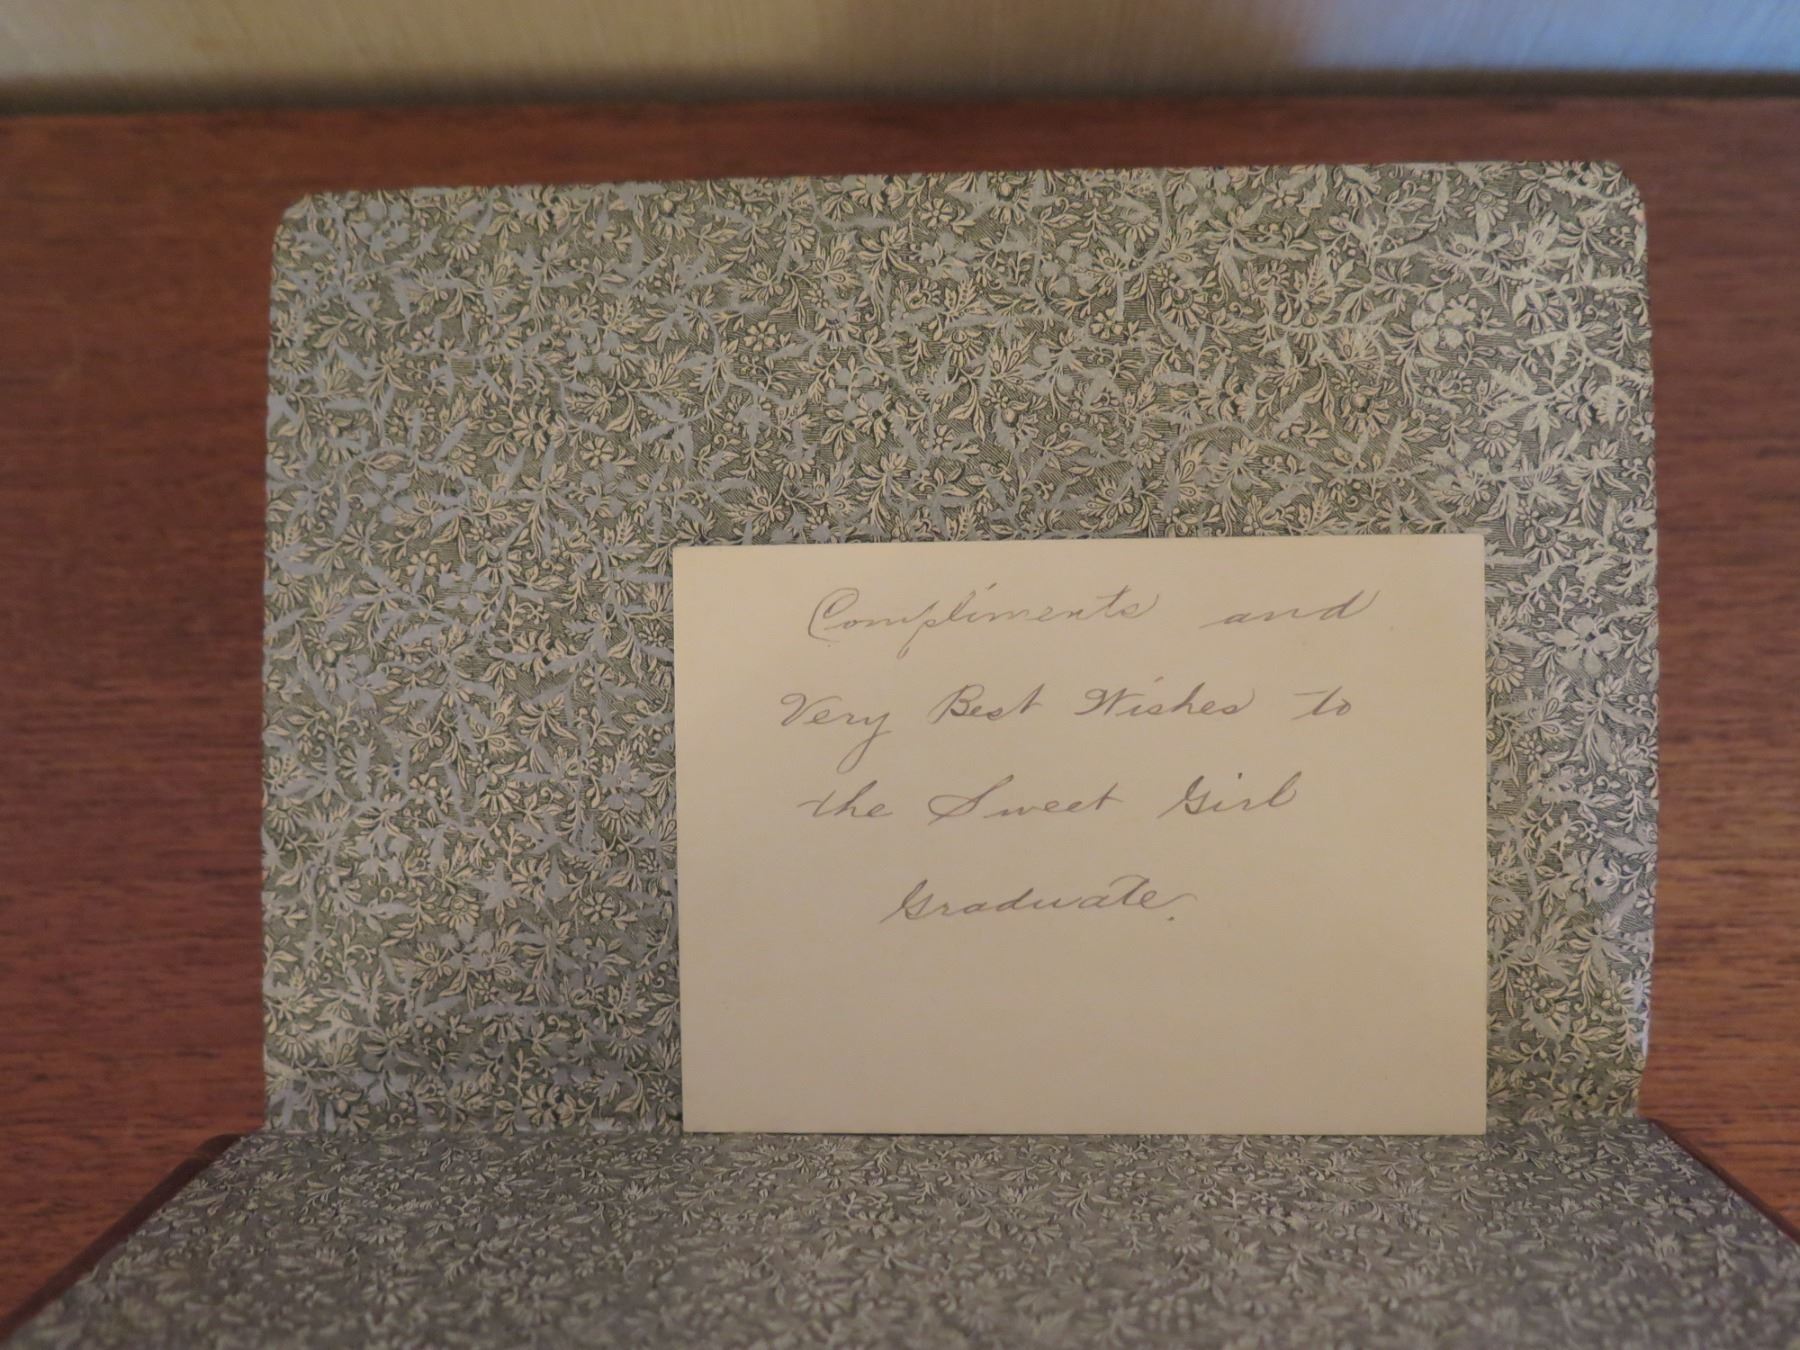 Compliments and
Very Best Wishes to
the Sweet Girl
Graduate.